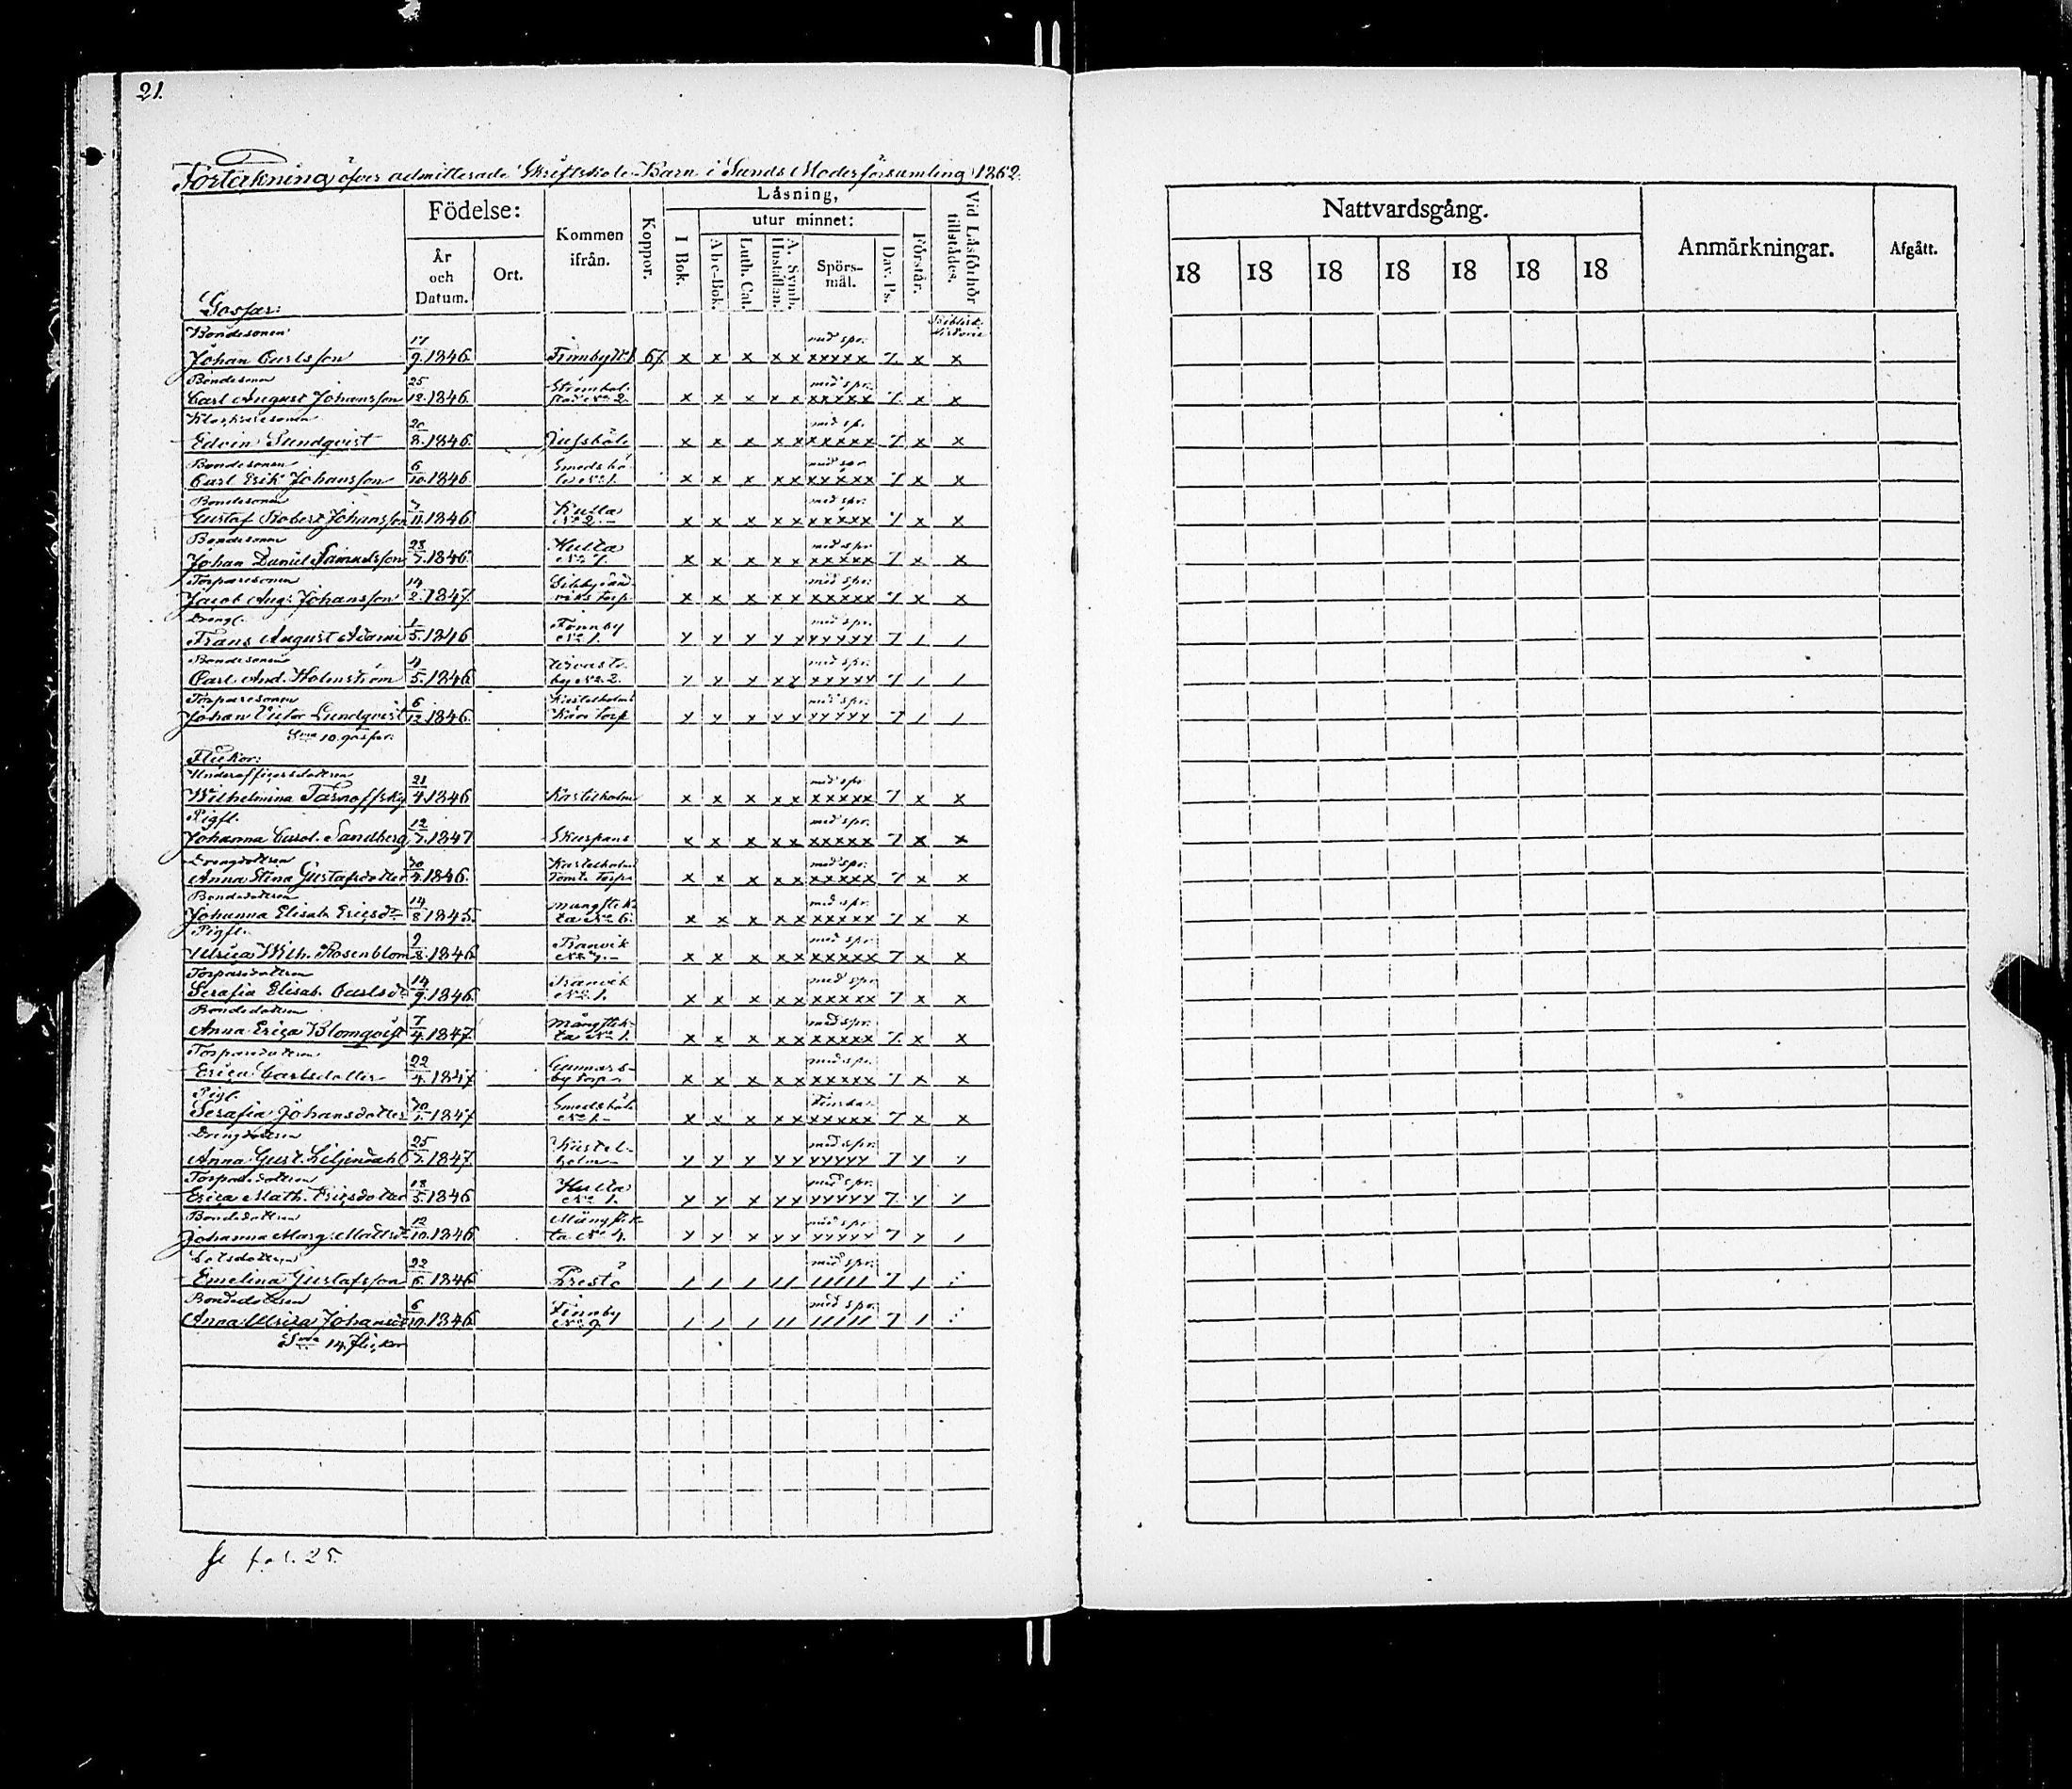 21.
Förtekning öfver admitterade Skriftskole-Barn i Sunds Moderförsamling 1862.
Födelse:
År och Datum.
Ort.
Kommen ifrån.
Koppor.
Läsning,
utur minnet:
I Bok.
Abc-Bok.
Luth. Cat.
A. Symb. Hustaflan.
Spörsmål.
Dav. Ps.
Förstår.
Vid Läsförhör tillstädes.
Biblisk Historie
Gossar:
Bondesonen
Johan Carlsson 17/9 1846. Finnby № 1. 67 x x x x x med spr. xxxxx 7. x x
Bondesonen
Carl August Johansson 25/12 1846. x x x x x med spr. xxxxx 7. x x
Edvin Sundqvist 20/8 1846. x x x x x med spr. xxxxx 7 x x
Bondesonen
Carl Erik Johansson 6/10 1846. Smedsbö-
le № 1. x x x x x med spr. xxxxx 7 x x
Bondesonen
Gustaf Robert Johansson 7/11 1846. Kulla
№ 2. x x x x x med spr. xxxxx 7 x x
Bondesonen
Johan Daniel Samuelsson 28/7 1846. Hulta
№ 1. x x x x x med spr. xxxxx 7 x x
Torparesonen
Jacob Aug: Johansson 14/2 1847 Sibby Sand-
viks torp x x x x x med spr. xxxxx 7 x x
Drengl.
Frans August 1/5 1846 Finnby
№ 1. y y y y x med spr. yyyyy 7 / /
Bondesonen
Carl And. Holmström 4/5 1846
by № 2. y y x x y med spr. yyyyy 7 / /
Torparesonen
Johan Victor Lundqvist 6/12 1846. Kastelholms
torp y y y y y med spr. yyyyy 7 / /
Sma 10 gossar.
Flickor:
Underofficersdottren
Wilhelmina Tarnoffsky 21/4 1846 Kastelholm x x x x x med spr. xxxxx 7 x x
Pigfl.
Johanna Carol. Sandberg 12/7 1847 Skarpans x x x x x med spr. xxxxx 7 x x
Drengdottren
Anna Stina Gustafsdotter 1846. Kastelholms
Tomte torp x x x x x med spr. xxxxx 7 x x
Bondedottren
Johanna Elisab. Ericsdr 14/8 1845. Mångstek-
ta № 6. x x x x x med spr. xxxxx 7 x x
Pigfl.
Ulrica Wilh. Rosenblom 9/8 1846 Tranvik x x x x x med spr. xxxxx 7 x x
Torparedottren
Serafia Elisab. Carlsdr 14/9 1846 Tranvik
№ 1. x x x x x med spr. xxxxx 7 x x
Bondedottren
Anna Erica Blomqvist 7/4 1847. Mångstek-
ta № 1. x x x x x med spr. xxxxx 7. x x
Torparedottren
Erica Carlsdotter 22/4 1847 Gunnars-
by torp x x x x x med spr. xxxxx 7 x x
Pigf.
Serafia Johansdotter 1847 Smedsböle
№ 1. x x x x x Finska. xxxxx 7 x x
Drengdottren
Anna Gust. Liljendahl 25/7 1847. Kastel-
holm y y y y y med spr. yyyyy 7 y /
Torparedottren
Erica Math. Ericsdotter 18/5 1846 Hulta
№ 1. y y x y y med spr. yyyyy 7. y y
Bondedottren
Johanna Marg. Mattsdr 12/10 1846 Mångstek-
ta № 4. y y x y y med spr. yyyyy 7 y /
Emelina Gustafsson 22/6 1846 Prestö / / / / / med spr. ///// 7 /
Bondedottren
Anna Ulrica Johansdr 6/10 1846 Finnby
№ 9 / / / / / med spr. ///// 7 /
Sma 14 flickor
fol. 25.
Nattvardsgång.
18 18 18 18 18 18 18
Anmärkningar.
Afgått.